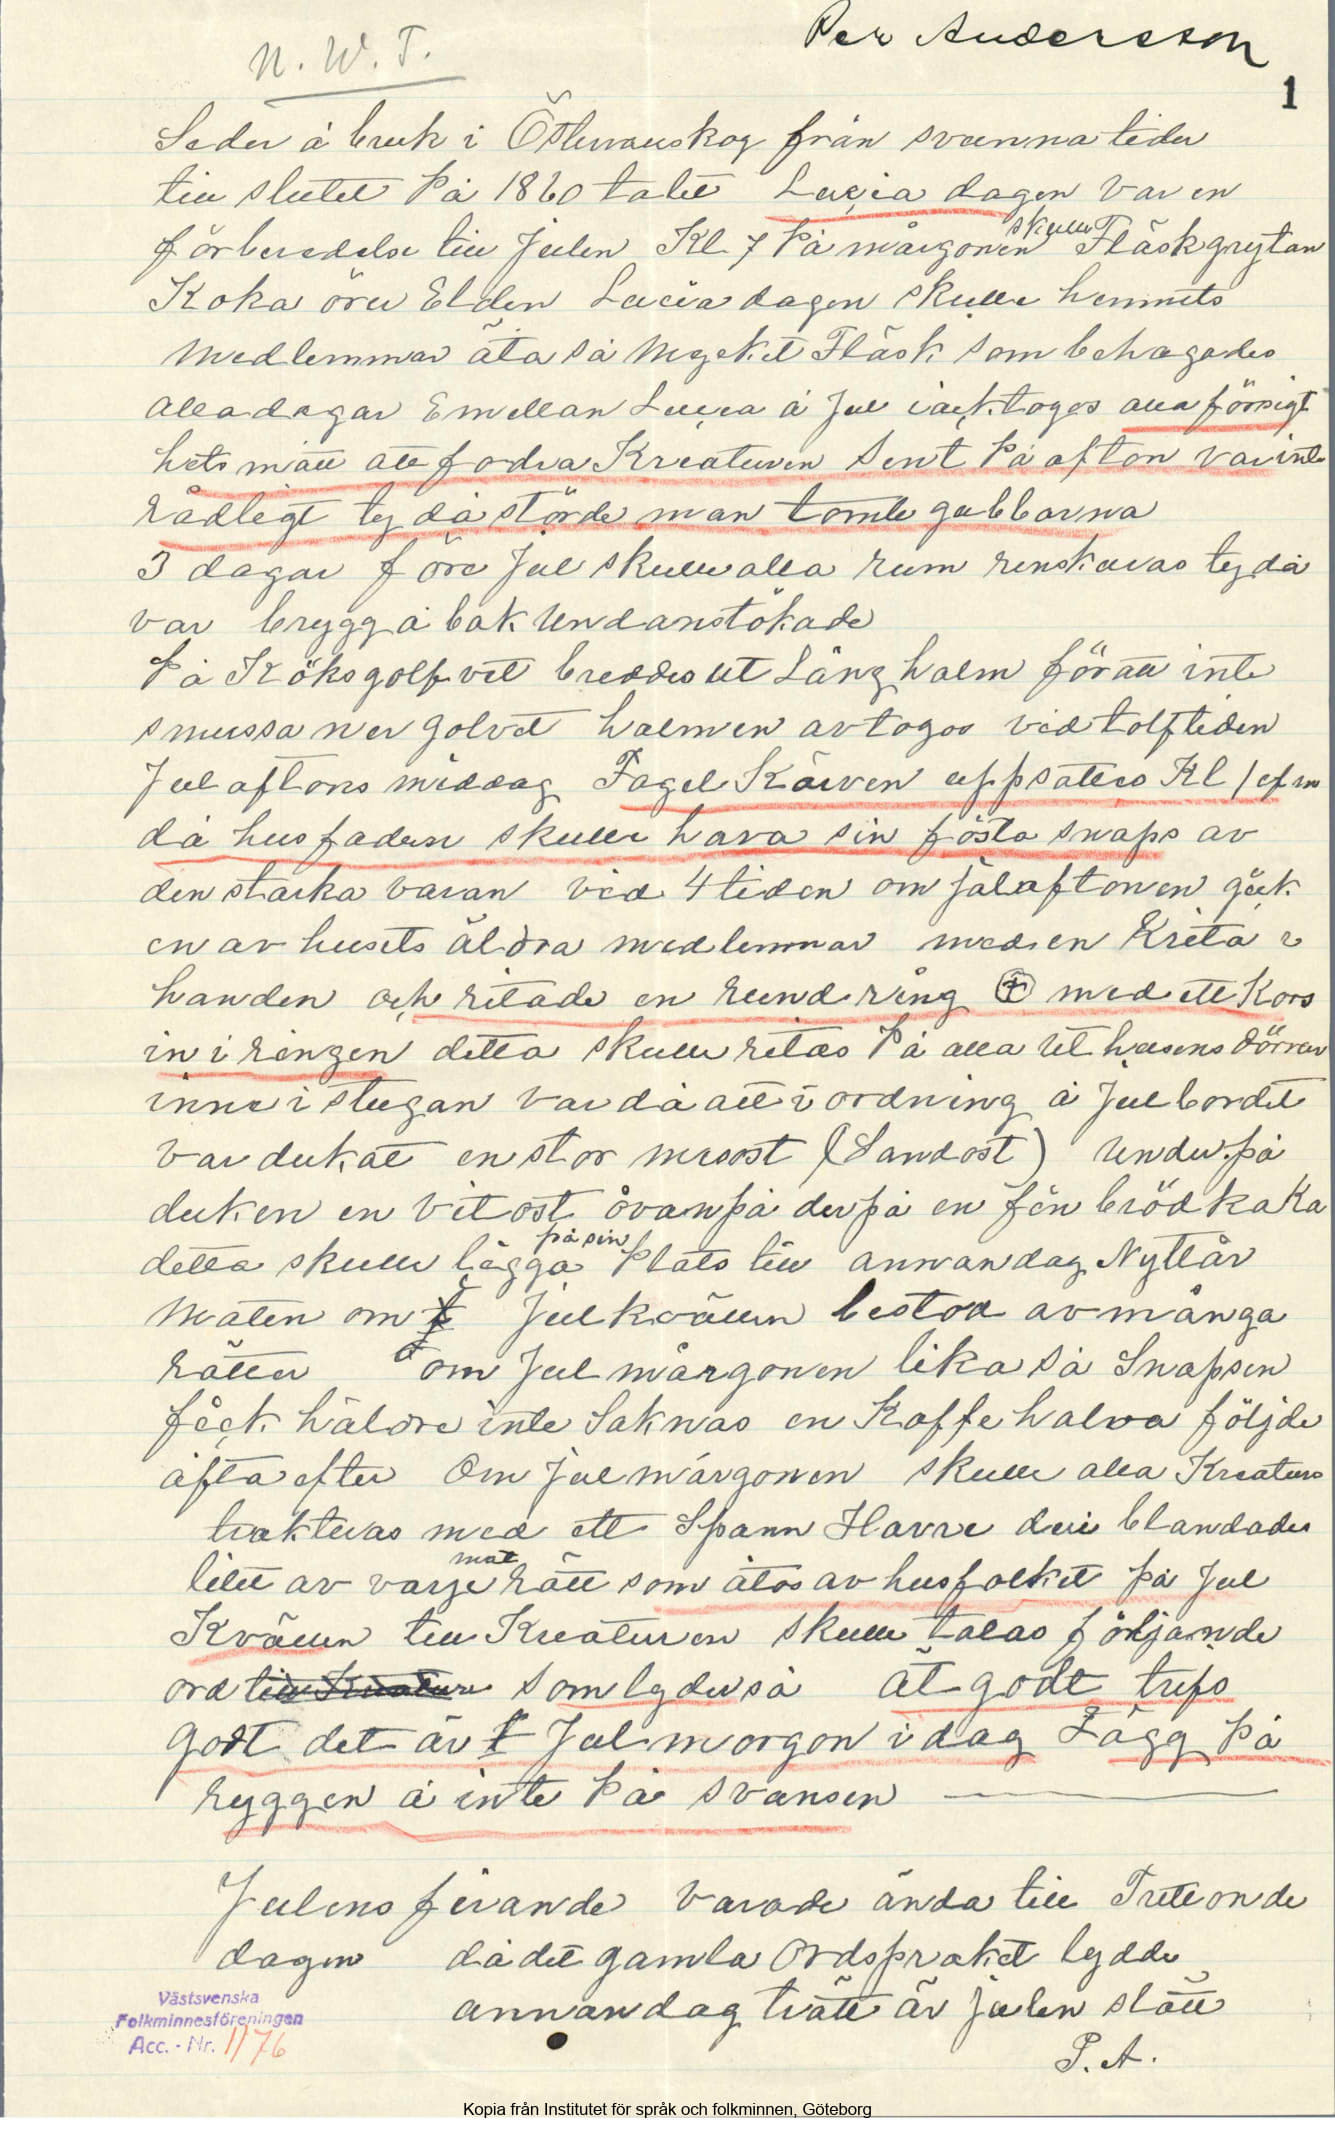 Per Andersson
N. W. T.
1
Seder å bruk i Östervanskog från svunna tider
till slutet På 1860 talet Lucia dagen var en
förberedelse till Julen Kl 7 På mårgonen skulle Fläskgrytan
Koka över Elden Lucia dagen skulle hemmets
medlemmar äta så mycket Fläsk som behagades
alla dagar Emellan Lucia å Jul iacktogos alla försigt
hets mått att fodra Kreaturen Sent På afton var inte
rådligt ty då störde man tomte gubbarna
3 dagar före Jul skulle alla rum renskuras ty då
var brygg å bak Undanstökade
På Köksgolfvet breddes ut Lång halm för att inte
smussa ner golvet halmen avtogos vid tolftiden
Jul aftons middag Fågel Kärven uppsattes Kl 1 efm
då husfadern skulle hava sin fösta snaps av
den starka varan vid 4 tiden om julaftonen gick
en av husets äldra medlemmar med en Krita i
handen och ritade en rund ring ⊕ med ett Kors
in i ringen detta skulle ritas På alla Uthusens dörrar
inne i stugan var då allt i ordning å Julbordet
var dukat en stor mesost (Landost) Under på
duken en vit ost åvanpå der på en fin brödkaka
detta skulle ligga på sin Plats till annandag Nyttår
Maten om Julkvällen bestod av många
rätter å om Jul mårgonen lika så Snapsen
fick häldre inte Saknas en Kaffe halva följde
åfta efter Om Jul mårgonen skulle alla Kreaturs
trakteras med ett Spann Havre deri blandades
litet av varje mat rätt som åtos av husfolket på Jul
Kvällen till Kreaturen skulle talas följande
ord till Kreaturen som lyder så ät godt trifs
godt det är Jul morgon i dag Lägg På
ryggen å inte På svansen
Julens firande varade ända till Trettonde
dagen då det gamla Ordspråket lydde
annandag tvätt är julen slätt
P. A.
Västsvenska
Folkminnesföreningen
Acc. - Nr. 1176
Kopia från Institutet för språk och folkminnen, Göteborg